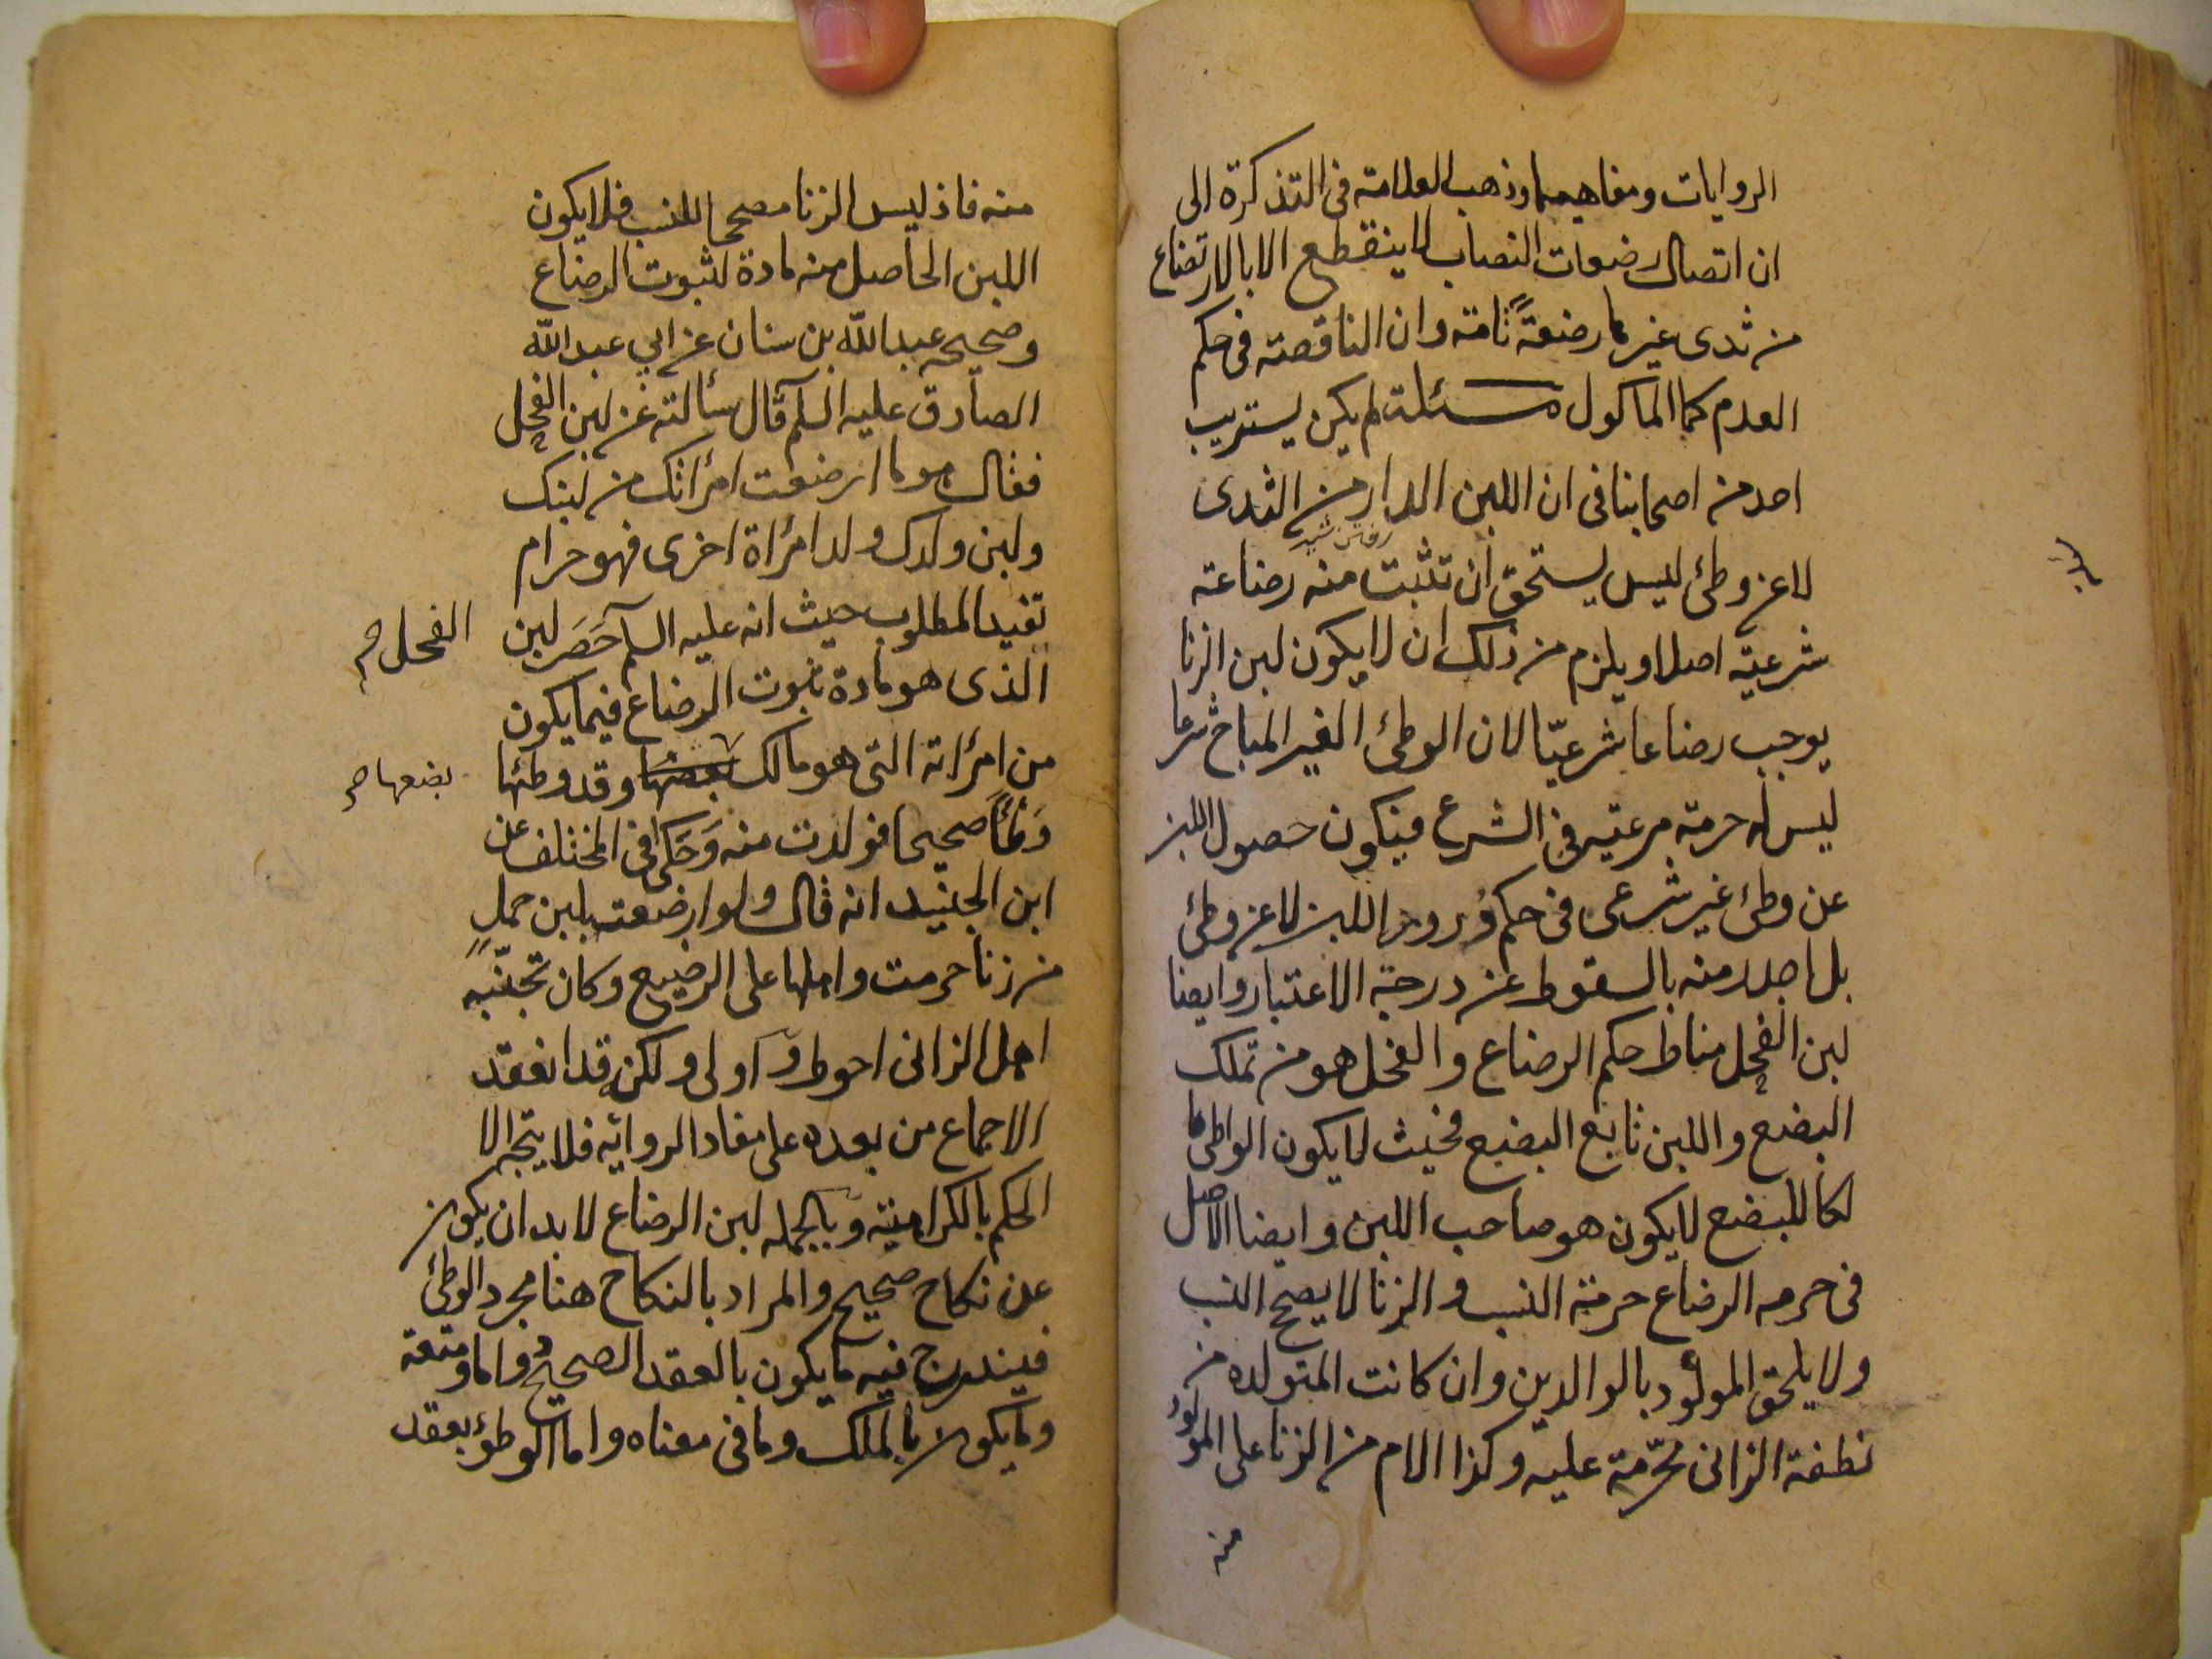 الروايات ومفاهيمها وذهب العلامة فى التذكرة الى
ان اتصال رضعات النصاب لا ينقطع الا بالارتضاع
من ثدى غيرها رضعةً تامة وان الناقصة فى حكم
العدم كما الماكول مسئلة لم يكن يستريب
احد من اصحابنا فى ان اللبن الدار من الثدى
لا عن وطئ ليس يستحق ان تثبت منه رضاعة
شرعية اصلا ويلزم من ذلك ان لا يكون لبن الزنا
يوجب رضاعا شرعيّا لان الوطئ الغير المباح شرعا
ليس له حرمة مرعية فى الشرع فيكون حصول اللبن
عن وطئ غير شرعى فى حكم دُرور اللبن لا عن وطئ
بل اجدر منه بالسقوط عن درجة الاعتبار وايضا
لبن الفحل مناط حكم الرضاع والفحل هو من تملك
البضع واللبن تابع البضع فحيث لا يكون الواطى ما
لكا للبضع لا يكون هو صاحب اللبن وايضا الاصل
فى حرمه الرضاع حرمة النسب والزنا لا يصحح النسب
ولا يلحق المولود بالوالدين وان كانت المتولده من
نطفة الزانى محرّمة عليه وكذا الام من الزنا على المولود
منه
منه فاذ ليس الزنا مصححا للنسب فلا يكون
اللبن الحاصل منه مادة لثبوت الرضاع
وصحيحه عبد الله بن سنان عن ابي عبد الله
الصادق عليه السلم قال سألته عن لبن الفحل
فقال هو ما ارضعت امرأتك من لبنك
ولبن ولدك ولد امرأة اخرى فهو حرام
تفيد المطلوب حيث انه عليه السلم حَصَر لبن
الفحل صح
الذى هو مادة ثبوت الرضاع فيما يكون
من امرأته التى هو مالك بضعها وقد وطئها
بضعها صح
وَطْئًا صحيحا فولدت منه وَحَكى فى المختلف عن
ابن الجنيد انه قال ولو ارضعت بلبن حمل
من زنا حرمت واهلها على الرضيع وكان تجنّبه
اهل الزانى احوط واولى ولكن قد انعقد
الاجماع من بعده على مفاد الرواية فلا يتجه الا
الحكم بالكراهية وبالجمله لبن الرضاع لا بد ان يكون
عن نكاح صحيح والمراد بالنكاح هنا مجرد الوطئ
فيندرج فيه ما يكون بالعقد الصحيح دواما ومتعة
وما يكون بالملك وما فى معناه واما الوطؤ بعقد